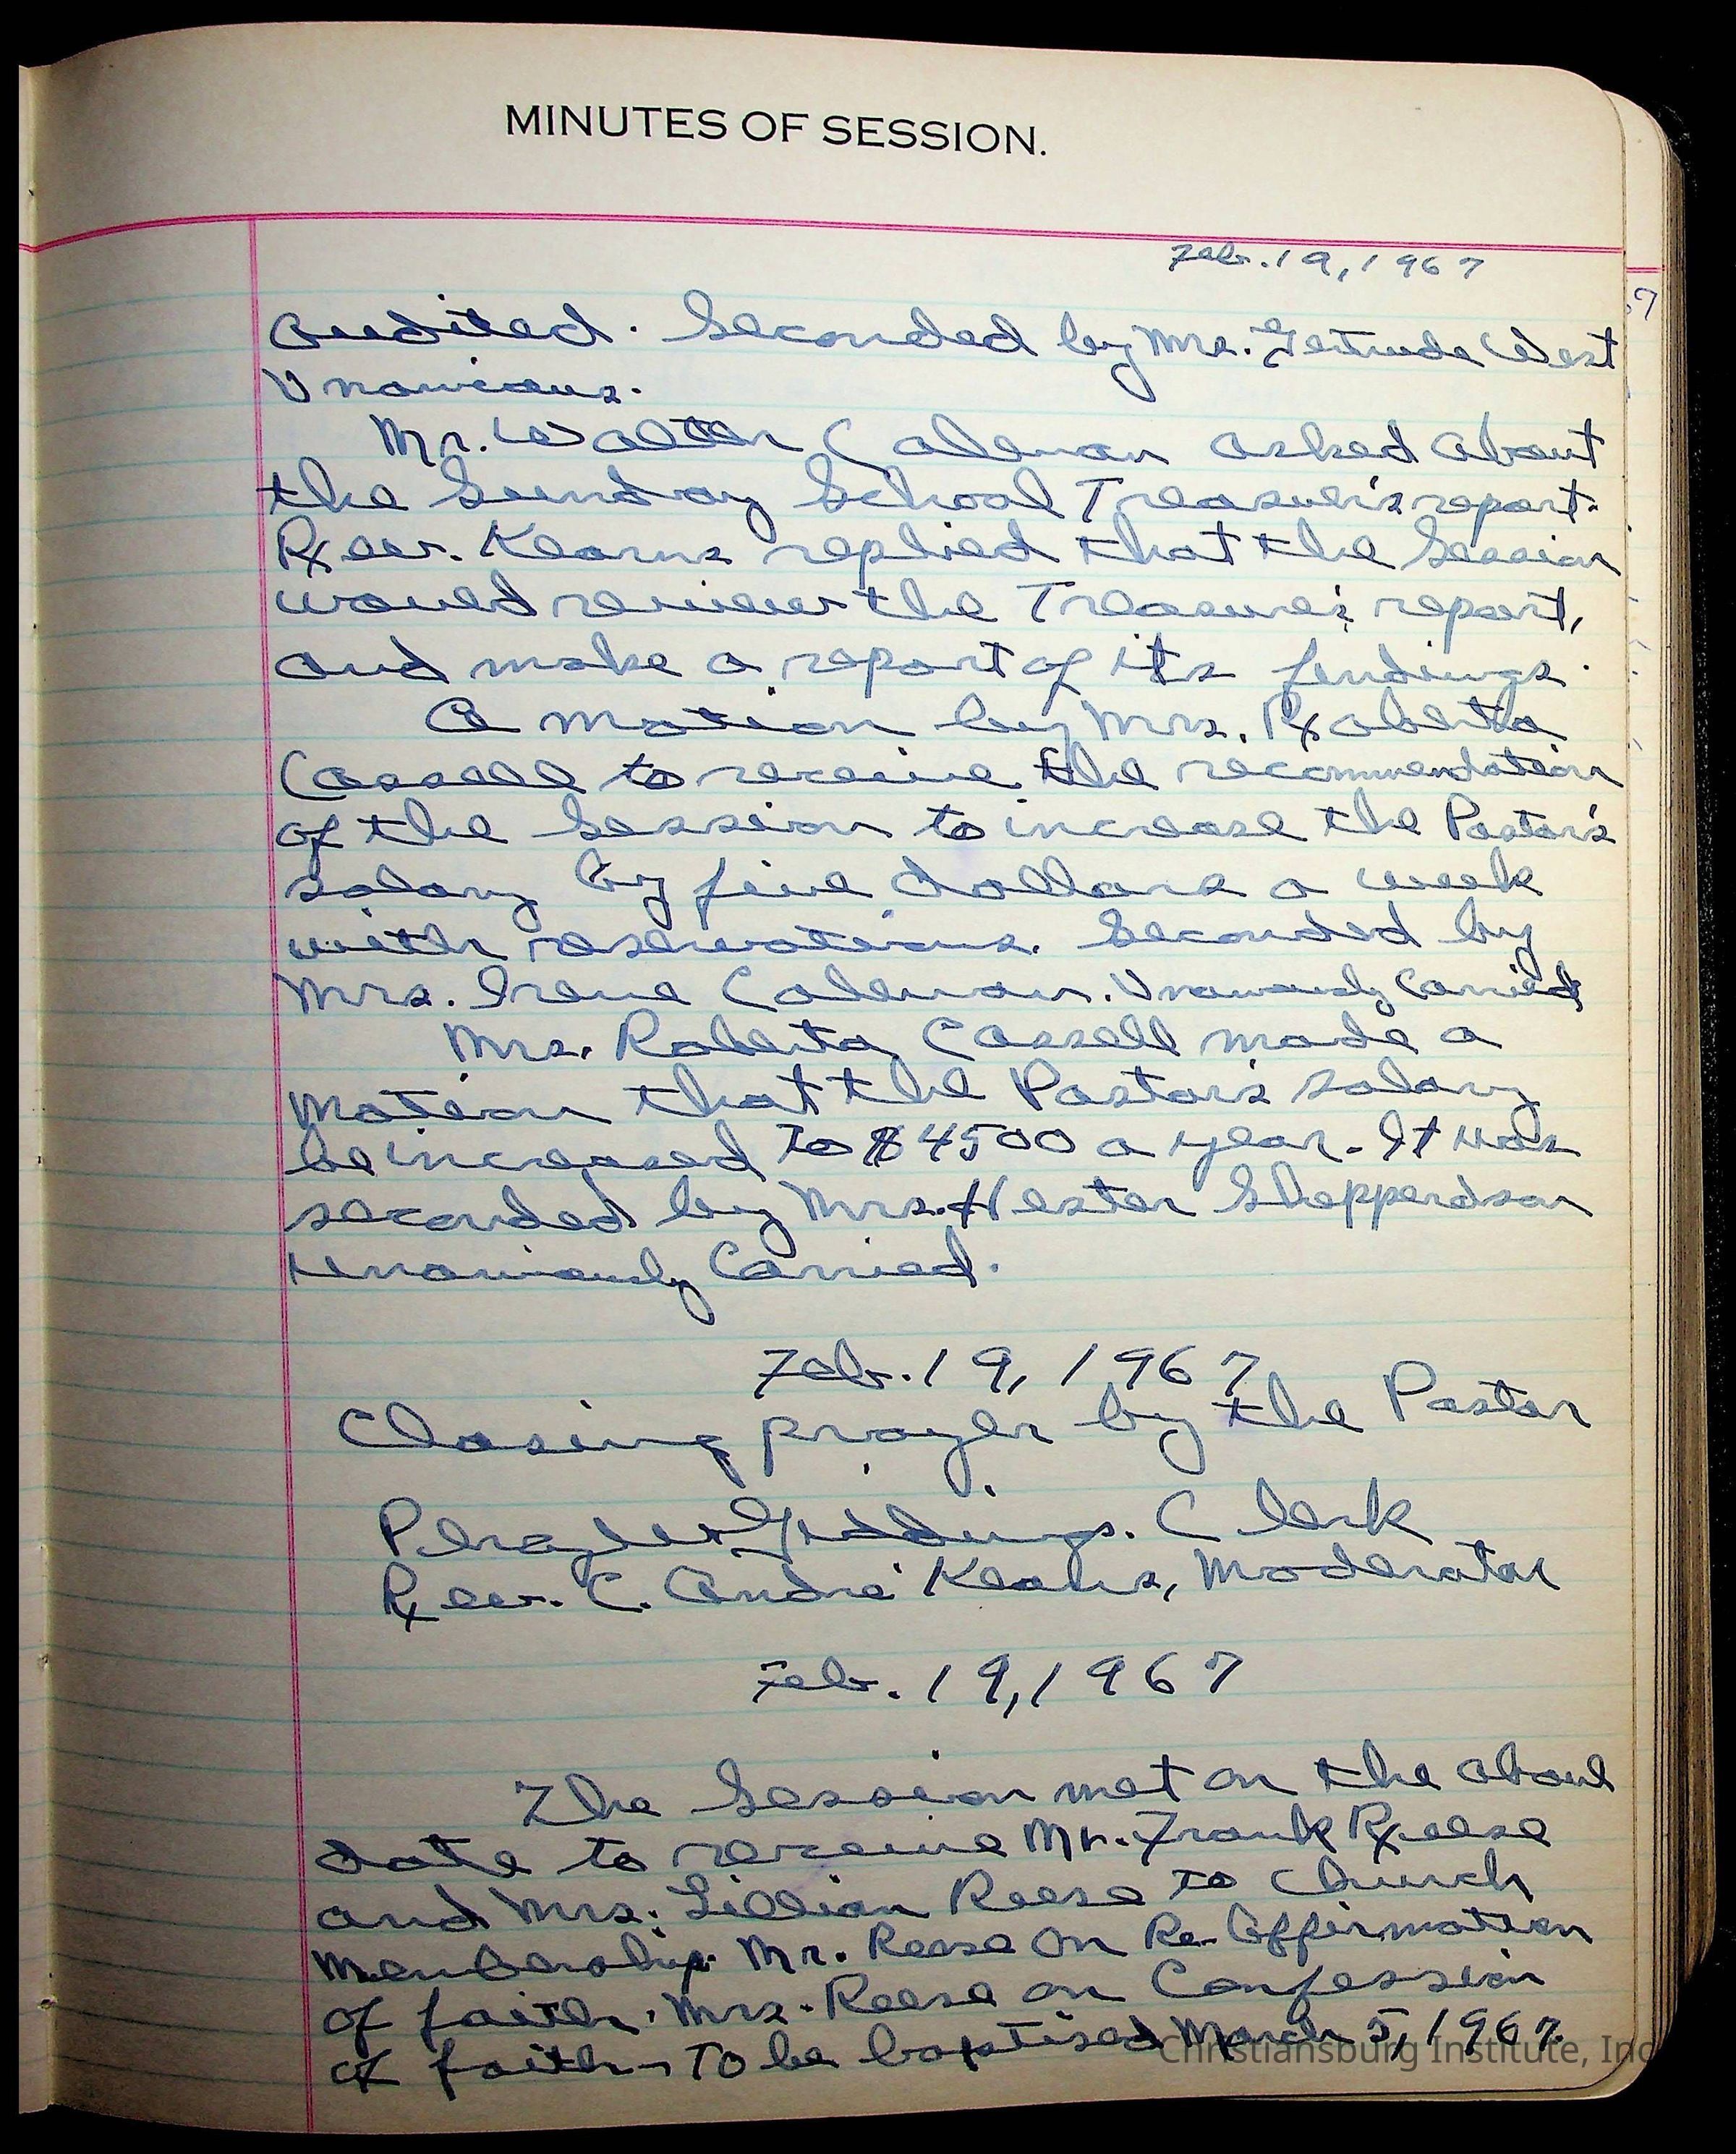 MINUTES OF SESSION.
Feb. 19, 1967
audited. Seconded by Mrs. Gertrude West
Unanious.
Mr. Walter Coleman asked about
the Sunday School Treasuer's report.
Rev. Kearns replied that the Session
would review the Treasurer's report,
and make a report of its findings.
A motion by Mrs. Roberta
Cassell to receive the recommendation
of the Session to increase the Pastor's
salary by five dollars a week
with reservations. Seconded by
Mrs. Irene Coleman. Unanously Carried
Mrs. Roberta Cassell made a
motion that the Pastor's salary
be increased to $4500 a year. It was
seconded by Mrs. Hester Shepperdson
Unaniously Carried.
Feb. 19, 1967
Closing prayer by the Pastor
Giddings. Clerk
Rev. C. André Kearns, Moderator
Feb. 19, 1967
The Session met on the above
date to receive Mr. Frank Reese
and Mrs. Lillian Reese to Church
Membership. Mr. Reese on Re-Affirmation
of faith. Mrs. Reese on Confession
of faith - To be baptised March 5, 1967.
Christiansburg Institute, Inc
7